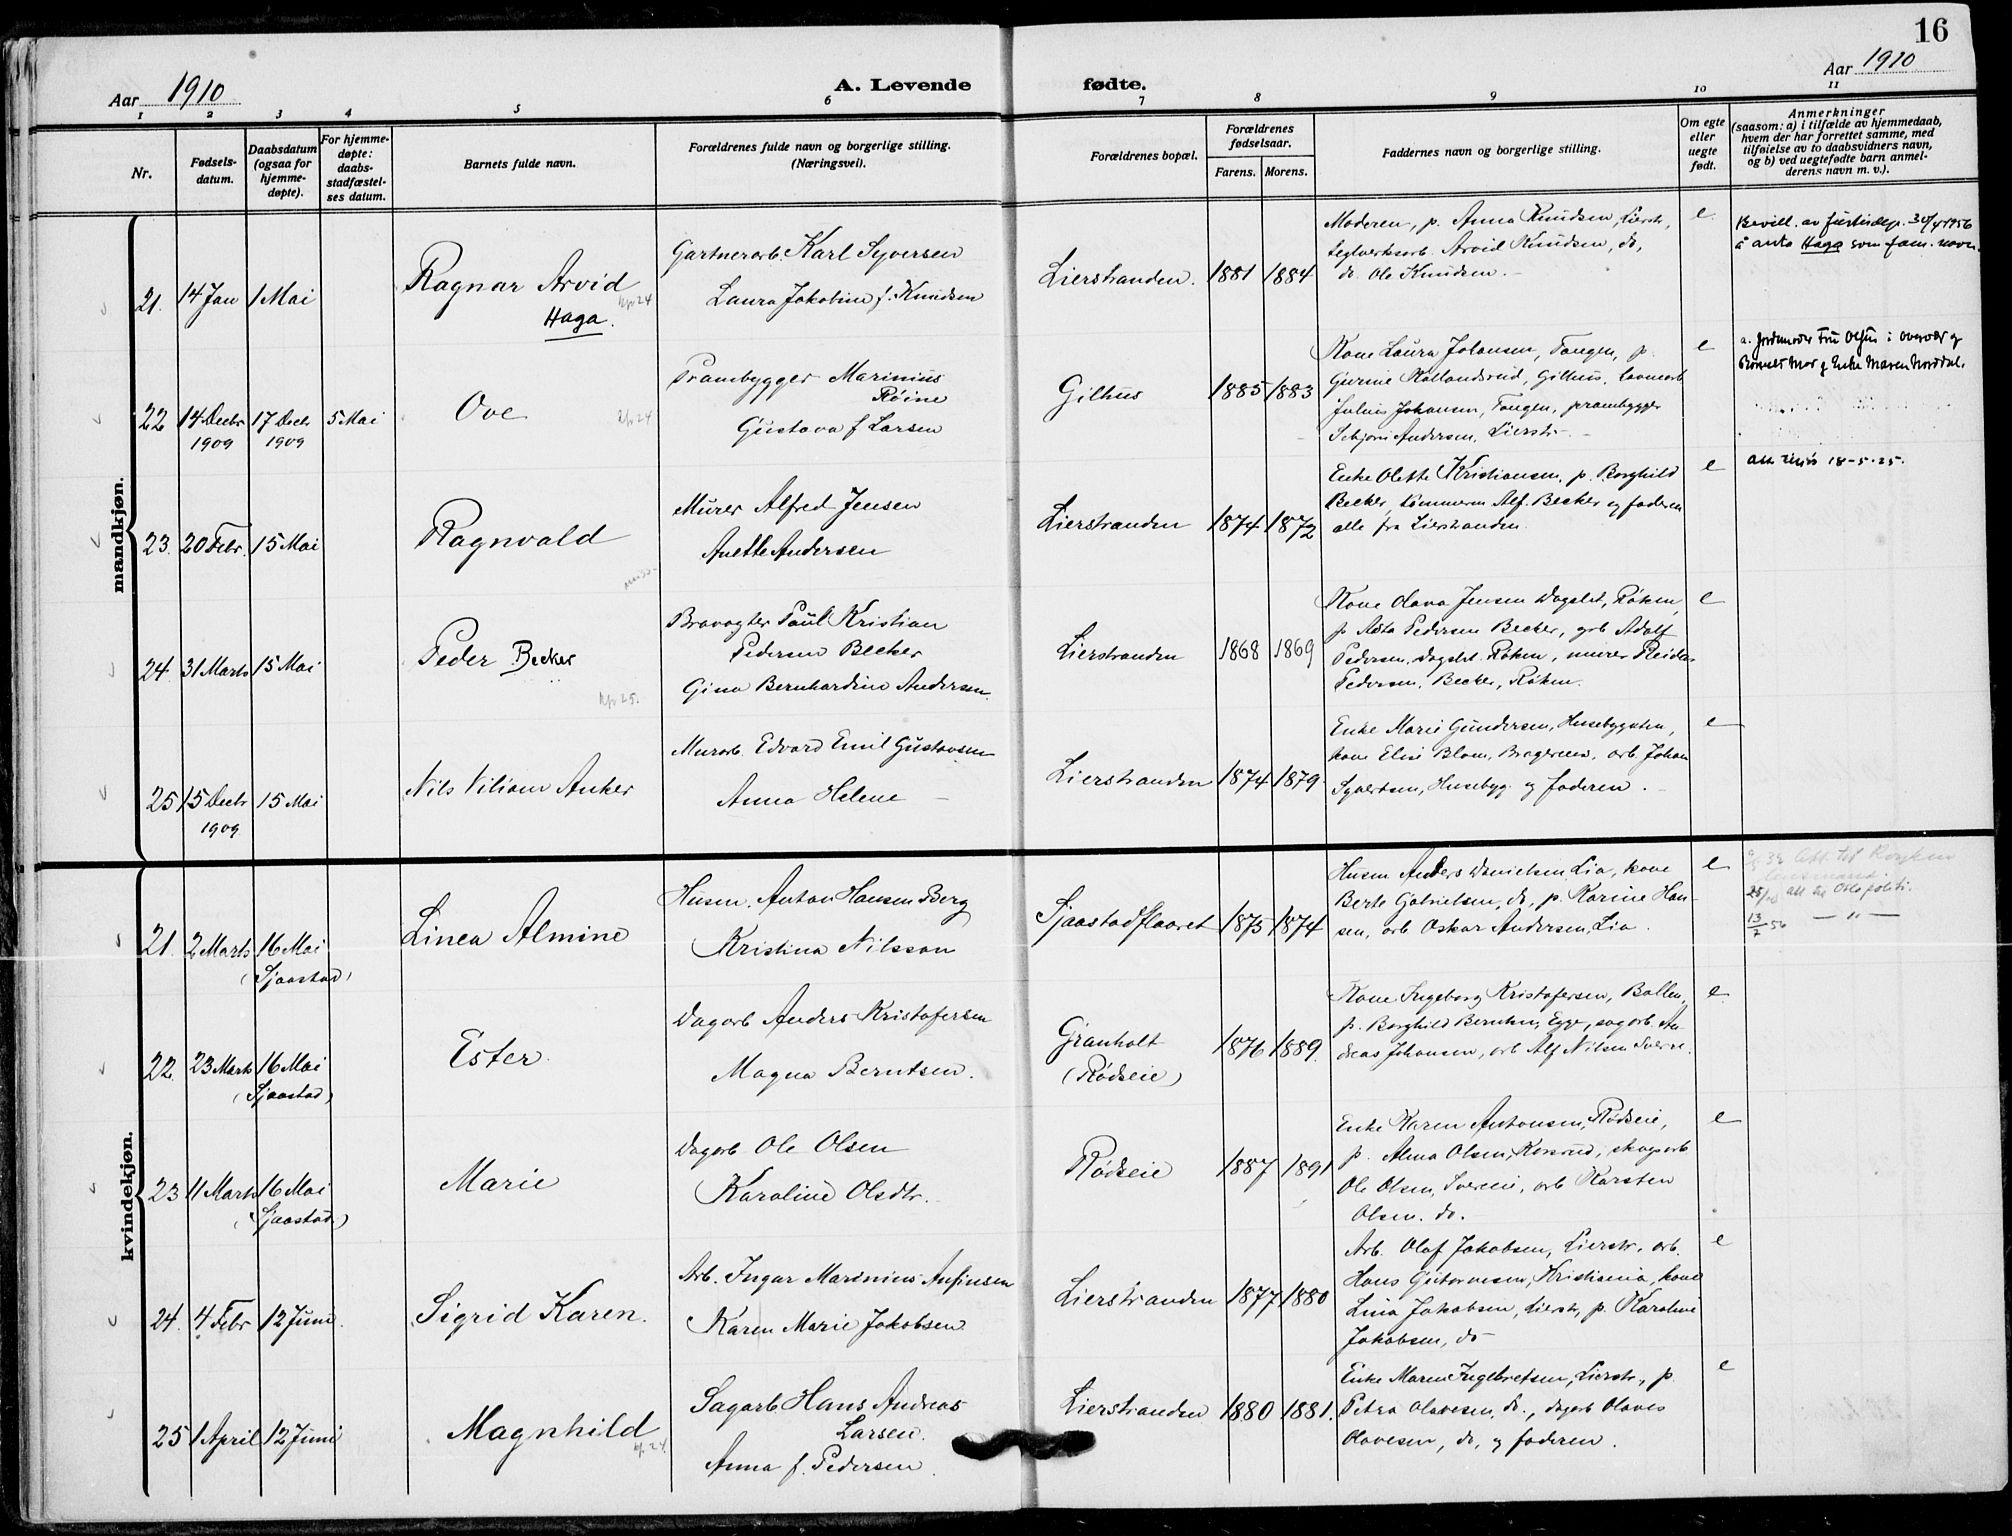 16
Aar 1910
A. Levende fødte.
Aar 1910
1 2 3 4 5 6 7 8 9 10 11
Nr.
Fødsels-
datum.
Daabsdatum
(ogsaa for
hjemme-
døpte).
For hjemme-
døpte:
daabs-
stadfæstel-
ses datum.
Barnets fulde navn.
Forældrenes fulde navn og borgerlige stilling.
(Næringsvei).
Forældrenes bopæl.
Forældrenes
fødselsaar.
Farens. Morens.
Faddernes navn og borgerlige stilling.
Om egte
eller
uegte
født.
Anmerkninger
(saasom: a) i tilfælde av hjemmedaab,
hvem der har forrettet samme, med
tilføielse av to daabsvidners navn,
og b) ved uegtefødte barn anmel-
derens navn m. v.).
mandkjøn.
21. 14 Jan 1 Mai
Ragnar Arvid
Haga.
Gartnerarb. Karl Syversen
Laura Jakobine f. Knudsen
Lierstranden. 1881 1884
Moderen, p. Anna Knudsen, Lierstr.,
teglverksarb. Arvid Knudsen, do,
do. Ole Knudsen.
e
Bevill. av justisdep. 30/4 1956
å anta Haga som fam. navn.
22 14 Decbr 17 Decbr 5 Mai
1909 1909
Ove
Prambygger Marinius
Røine
Gustava f Larsen
Gilhus 1885 1883
Kone Laura Johansen, Tangen, p.
Gurine Kollandsrud, Gilhus,
Julius Johansen, Tangen, prambygger
Andersen, Lierstr.
e
a. Jordmoder Fru i overvær af
Barnets Mor og Enke Maren Norddal.
23. 20 Febr. 15 Mai
Ragnvald
Murer Alfred Jensen
Anette Andersen
Lierstranden 1874 1872
Enke Olette Kristiansen, p. Borghild
Becker, Alf. Becker og faderen
alle fra Lierstranden.
e
18-5-25.
24. 31 Marts 15 Mai
Peder Becker
Brovogter Paul Kristian
Pedersen Becker
Gina Bernhardine Andersen.
Lierstranden 1868 1869
Kone Olava Jensen Dagslet, Røken,
p Asta Pedersen Becker, grb Adolf
Pedersen, Dagslet. Røken, murer Reidar
Pedersen, Becker, Røken.
e
25 15 Decbr 15 Mai
1909
Nils Viliam Anker
Murarb. Edvard Emil Gustavsen
Anna Helene –
Lierstranden 1874 1879
Enke Marie Gundersen, Husebygaten,
kone Elise Blom, Bragernes, arb. Johan
Syvertsen, Husebyg. og faderen.
e
kvindekjøn.
21. 2 Marts 16 Mai
(Sjaastad)
Linea Almine
Husm. Anton Hansen Berg
Kristina Nilsson
Sjaastadflaaret 1875 1874
Husm Anders Danielsen, Lia, kone
Berte Gabrielsen, do, p. Karine Han-
sen, arb Oskar Andersen, Lia.
e
att. til Oslo politi.
13/7 56 — " —
22. 23 Marts 16 Mai
(Sjaastad)
Ester.
Dagarb Anders Kristofersen
Magna Berntsen.
Granholt
(Rødseie)
1876 1889.
Kone Ingeborg Kristofersen, Ballen,
p. Borghild Berntsen, Egge, sagarb. An-
dreas Johansen, arb Alf Nilsen Sverre.
e
23 11 Marts 16 Mai
(Sjaastad)
Marie
Dagarb Ole Olsen
Karoline Olsdtr.
Rødseie 1887 1891
Enke Karen Antonsen, Rødseie,
p. Alma Olsen, Korsrud, skogsarb
Ole Olsen, Svereie, arb Karsten
Olsen. do.
e
24. 4 Febr 12 Juni.
Sigrid Karen.
Arb. Ingar Marinius Anfinsen
Karen Marie Jakobsen
Lierstranden 1877 1880
Arb. Olaf Jakobsen, Lierstr, arb.
Hans Kristiania, kone
Lina Jakobsen, Lierstr, p. Karoline
Jakobsen, do
e
25 1 April 12 Juni
Magnhild
Sagarb. Hans Andreas
Larsen.
Anna f. Pedersen.
Lierstranden 1880 1881.
Enke Maren Ingebretsen, Lierstr., p.
Petra Olavesen, do., dagarb Olaves
Olavesen, do, og faderen.
e